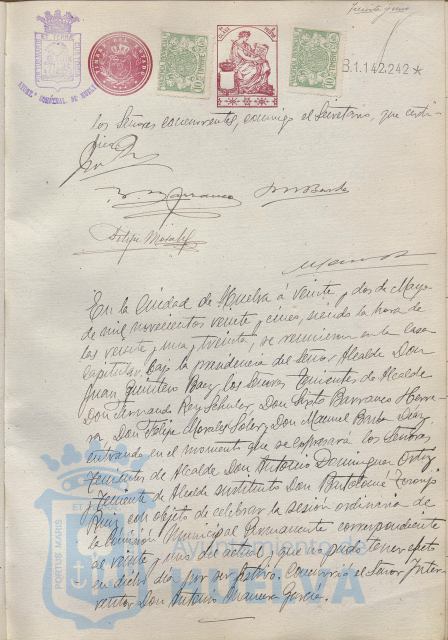 Treinta y uno
AYUNT.º CONST.NAL DE HUELVA
B.1.142.242 *
los Señores concurrentes, conmigo el Secretario, que certi-
fico=
Felipe Morales
En la Ciudad de Huelva á veinte y dos de Mayo
de mil novecientos veinte y cinco, siendo la hora de
las veinte y una y treinta, se reunieron en la Casa
Capitular, bajo la presidencia del Señor Alcalde Don
Juan Quintero Baez, los Señores Tenientes de Alcalde
Don Armando Rey Schuler, Don Sixto Barranco Herre-
ra, Don Felipe Morales Soler y Don Manuel Barba Diaz
entrando en el momento que se expresará los Señores
Teniente de Alcalde Don Antonio Dominguez Ortiz
y Teniente de Alcalde sustituto Don Bartolomé Toronjo
Ruiz con objeto de celebrar la sesión ordinaria de
la Comisión Municipal Permanente correspondiente
al veinte y uno del actual, y que no pudo tener efecto
en dicho día por ser festivo. Concurrió el Señor Inter-
ventor Don Antonio Garcia.
PORTUS MARIS ET
Ayuntamiento de
HUELVA